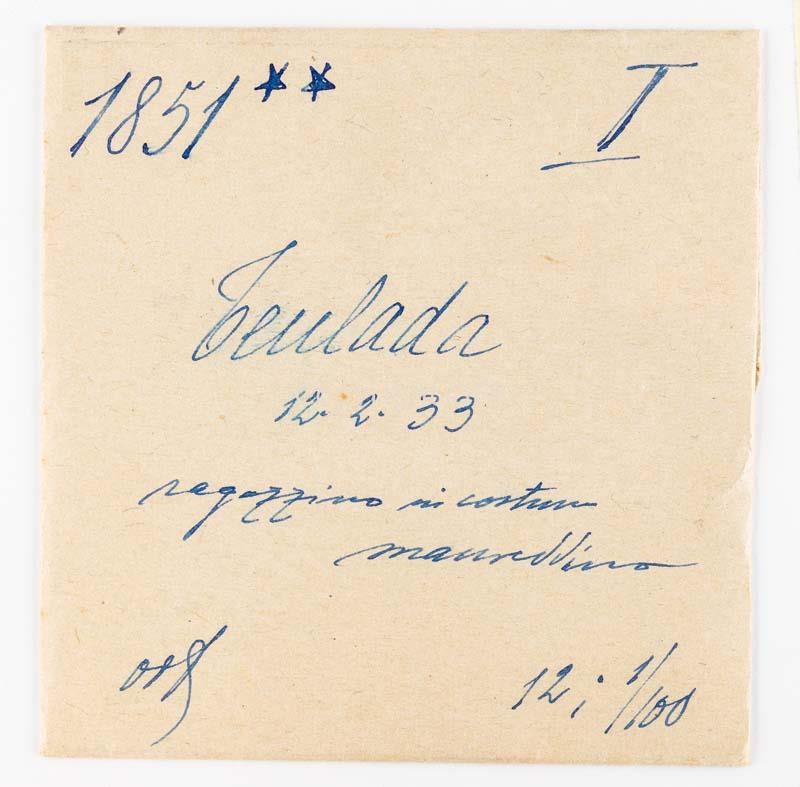 1851** I
Teulada
12. 2. 33
ragazzino in costume
maureddino
12; 1/100